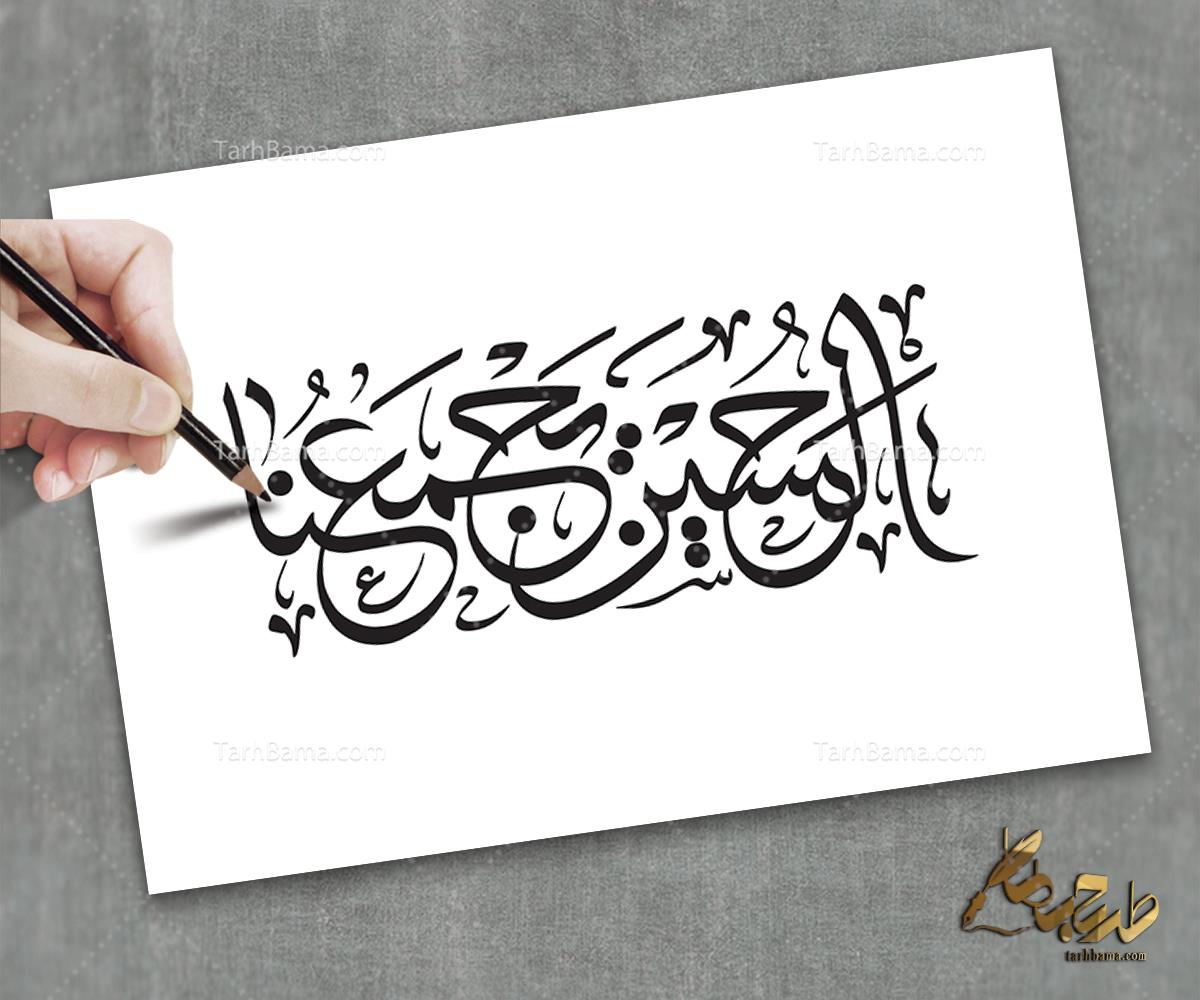 TarhBama.com TarhBama.com
الحسین یجمعنا
TarhBama.com TarhBama.com
TarhBama.com TarhBama.com
طرح باما
tarhbama.com